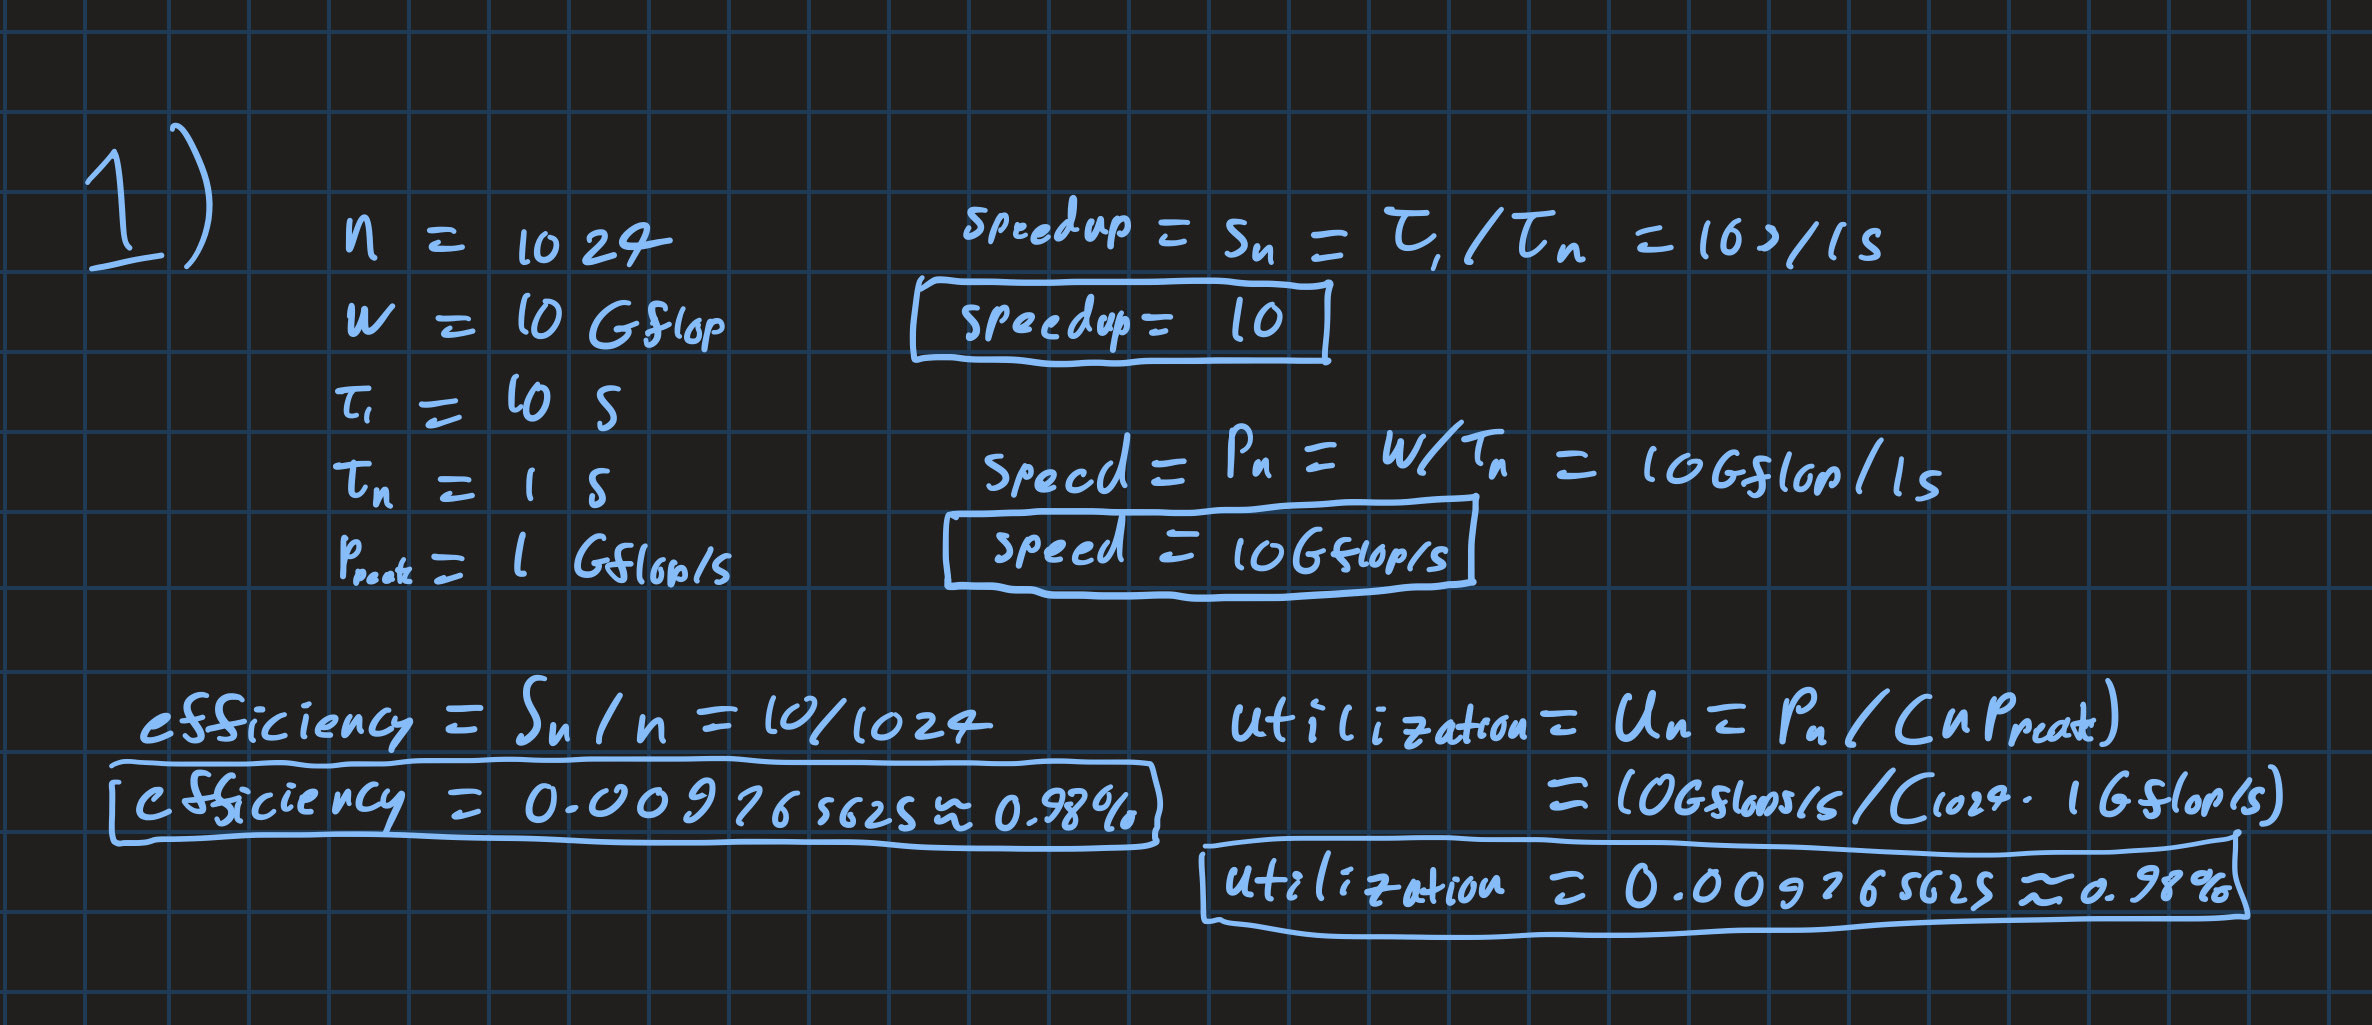 1)
n = 1024
w = 10 Gflop
τ₁ = 10 s
τₙ = 1 s
Pₚₑₐₖ = 1 Gflop/s
speedup = Sₙ = τ₁/τₙ = 10s/1s
speedup = 10
speed = Pₙ = w/τₙ = 10Gflop/1s
speed = 10Gflop/s
efficiency = Sₙ/n = 10/1024
efficiency = 0.009765625 ≈ 0.98%
utilization = Uₙ = Pₙ/(nPₚₑₐₖ)
= 10Gflops/s/(1024 · 1Gflop/s)
utilization = 0.009765625 ≈ 0.98%